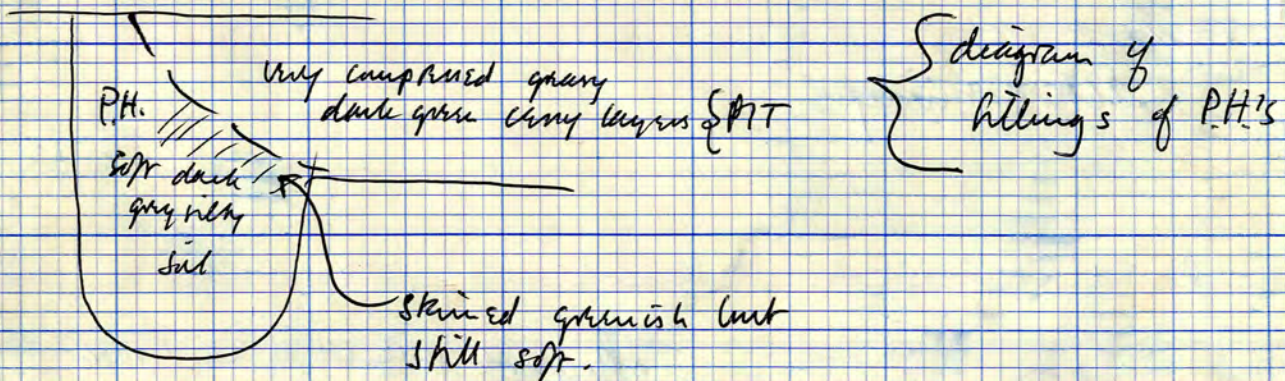 very compressed greasy
dark green cessy layers { PIT
P.H.
soft dark
grey silty
soil
stained greenish but
still soft.
{ diagram of
fillings of P.H.'s